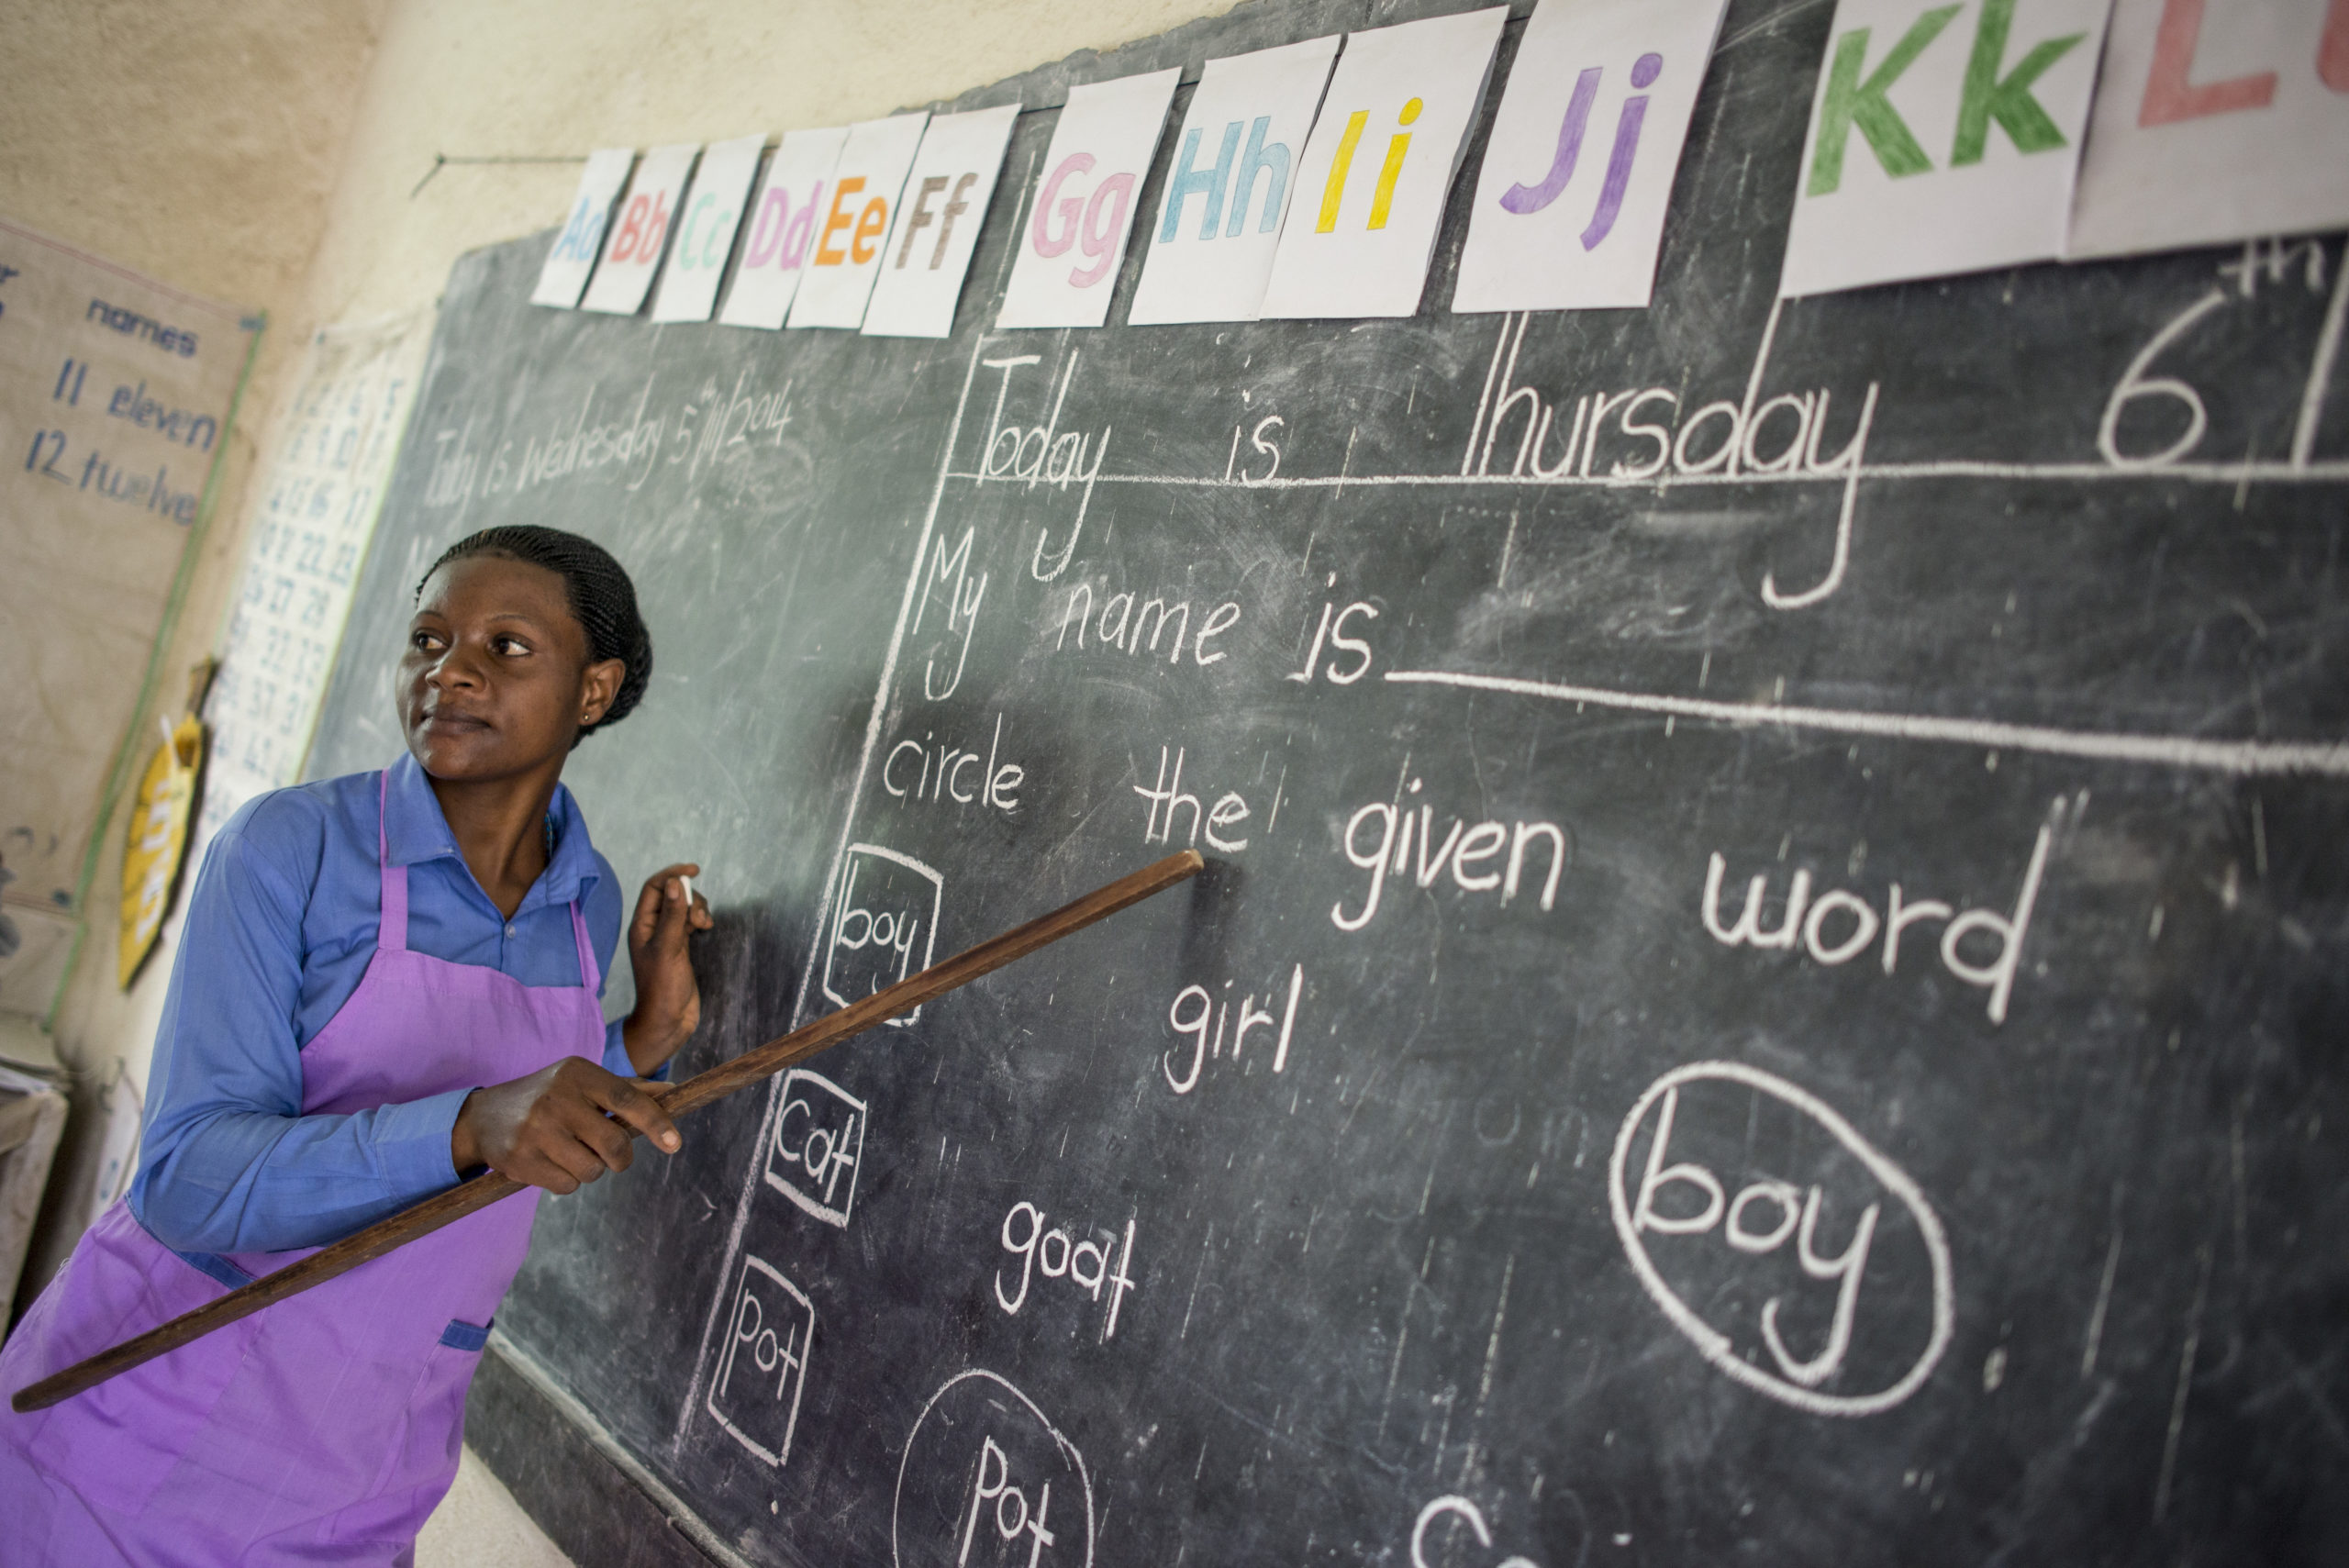 Aa Bb Cc Dd Ee Ff Gg Hh Ii Jj Kk
names
11 eleven
12 twelve
Today is Wednesday 5th/11/2014
Today is Thursday 6th/
My name is
circle the given word
boy girl boy
cat goat
pot pot